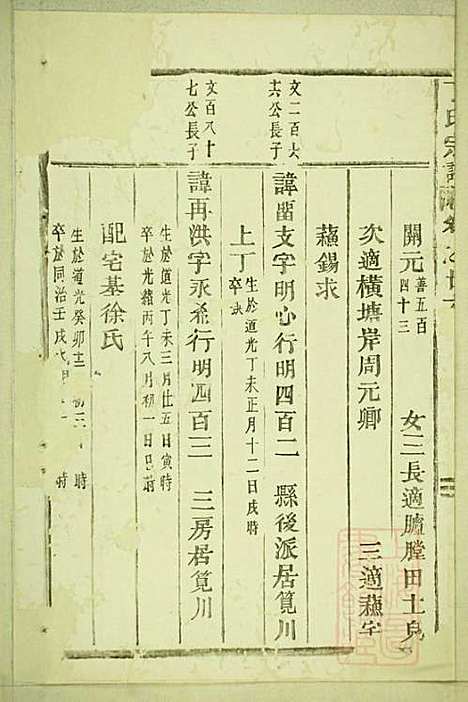 氏宗譜卷之廿
開元 善五百四十三 女三長適臚膛田士
次適橫塘岸周元卿 三適蘓字
蘓錫求
文二百六
共公長子
諱畱支字明心行明四百二 縣後派居筧川
上丁 生於道光丁未正月十二日戌時
卒缺
文百八十
七公長子
諱再洪字永希行明四百三 三房居筧川
生於道光丁未三月廿五日寅時
卒於光緒丙午八月初一日巳時
配宅基徐氏
生於道光癸卯十 初三 時
卒於同治壬戌 時